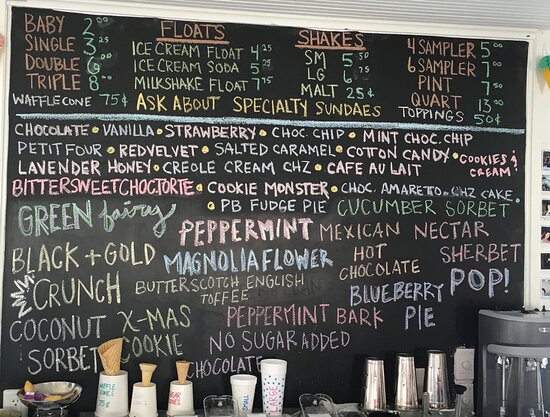 BABY 2.00
SINGLE 3.25
DOUBLE 6
TRIPLE 8.00
WAFFLE CONE 75¢
FLOATS
ICE CREAM FLOAT 4.25
ICE CREAM SODA 5.25
MILKSHAKE FLOAT 7.75
SHAKES
SM 5.50
LG 6.75
MALT 25¢
4 SAMPLER 5.00
6 SAMPLER 7.00
PINT 7.50
QUART 13.00
TOPPINGS 50¢
ASK ABOUT SPECIALTY SUNDAES
CHOCOLATE • VANILLA • STRAWBERRY • CHOC. CHIP • MINT CHOC. CHIP
PETIT FOUR • RED VELVET • SALTED CARAMEL • COTTON CANDY • COOKIES & CREAM
LAVENDER HONEY • CREOLE CREAM CHZ • CAFE AU LAIT
BITTERSWEET CHOC TORTE • COOKIE MONSTER • CHOC. AMARETTO CHZ CAKE
• PB FUDGE PIE
GREEN fairy
CUCUMBER SORBET
PEPPERMINT
MEXICAN HOT CHOCOLATE
NECTAR SHERBET POP!
BLACK + GOLD CRUNCH
MAGNOLIA FLOWER
BUTTERSCOTCH ENGLISH TOFFEE
BLUEBERRY PIE
COCONUT SORBET
X-MAS COOKIE
PEPPERMINT BARK
NO SUGAR ADDED CHOCOLATE
WAFFLE CONES
SUGAR CONES
SMALL
LARGE